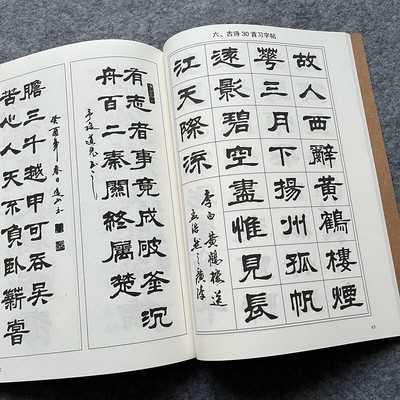 六、古诗 30 首习字帖
故人西辭黃鶴樓煙
華三月下揚州孤帆
遠影碧空盡惟見長
江天際流
李白黃鶴樓送
孟浩然之廣陵
63
有志者事竟成破釜沉
舟百二秦關終屬楚
苦心人天不負臥薪嘗
膽三千越甲可吞吳